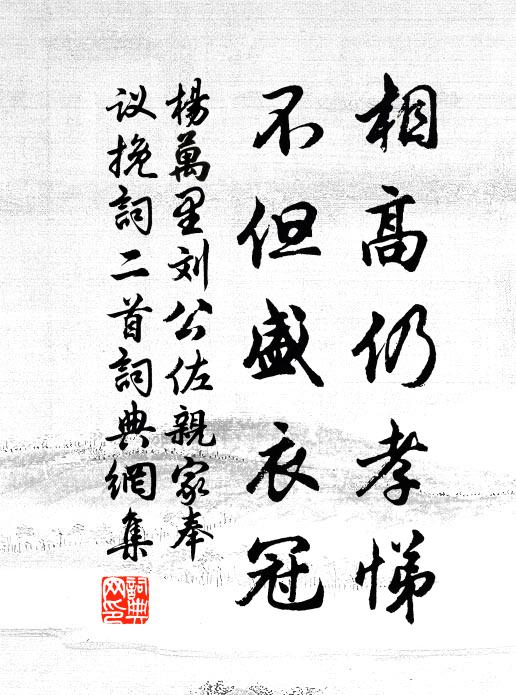 相高仍孝悌
不但盛衣冠
楊萬里刘公佐親家奉
议挽詞二首詞典網集
詞典
网印